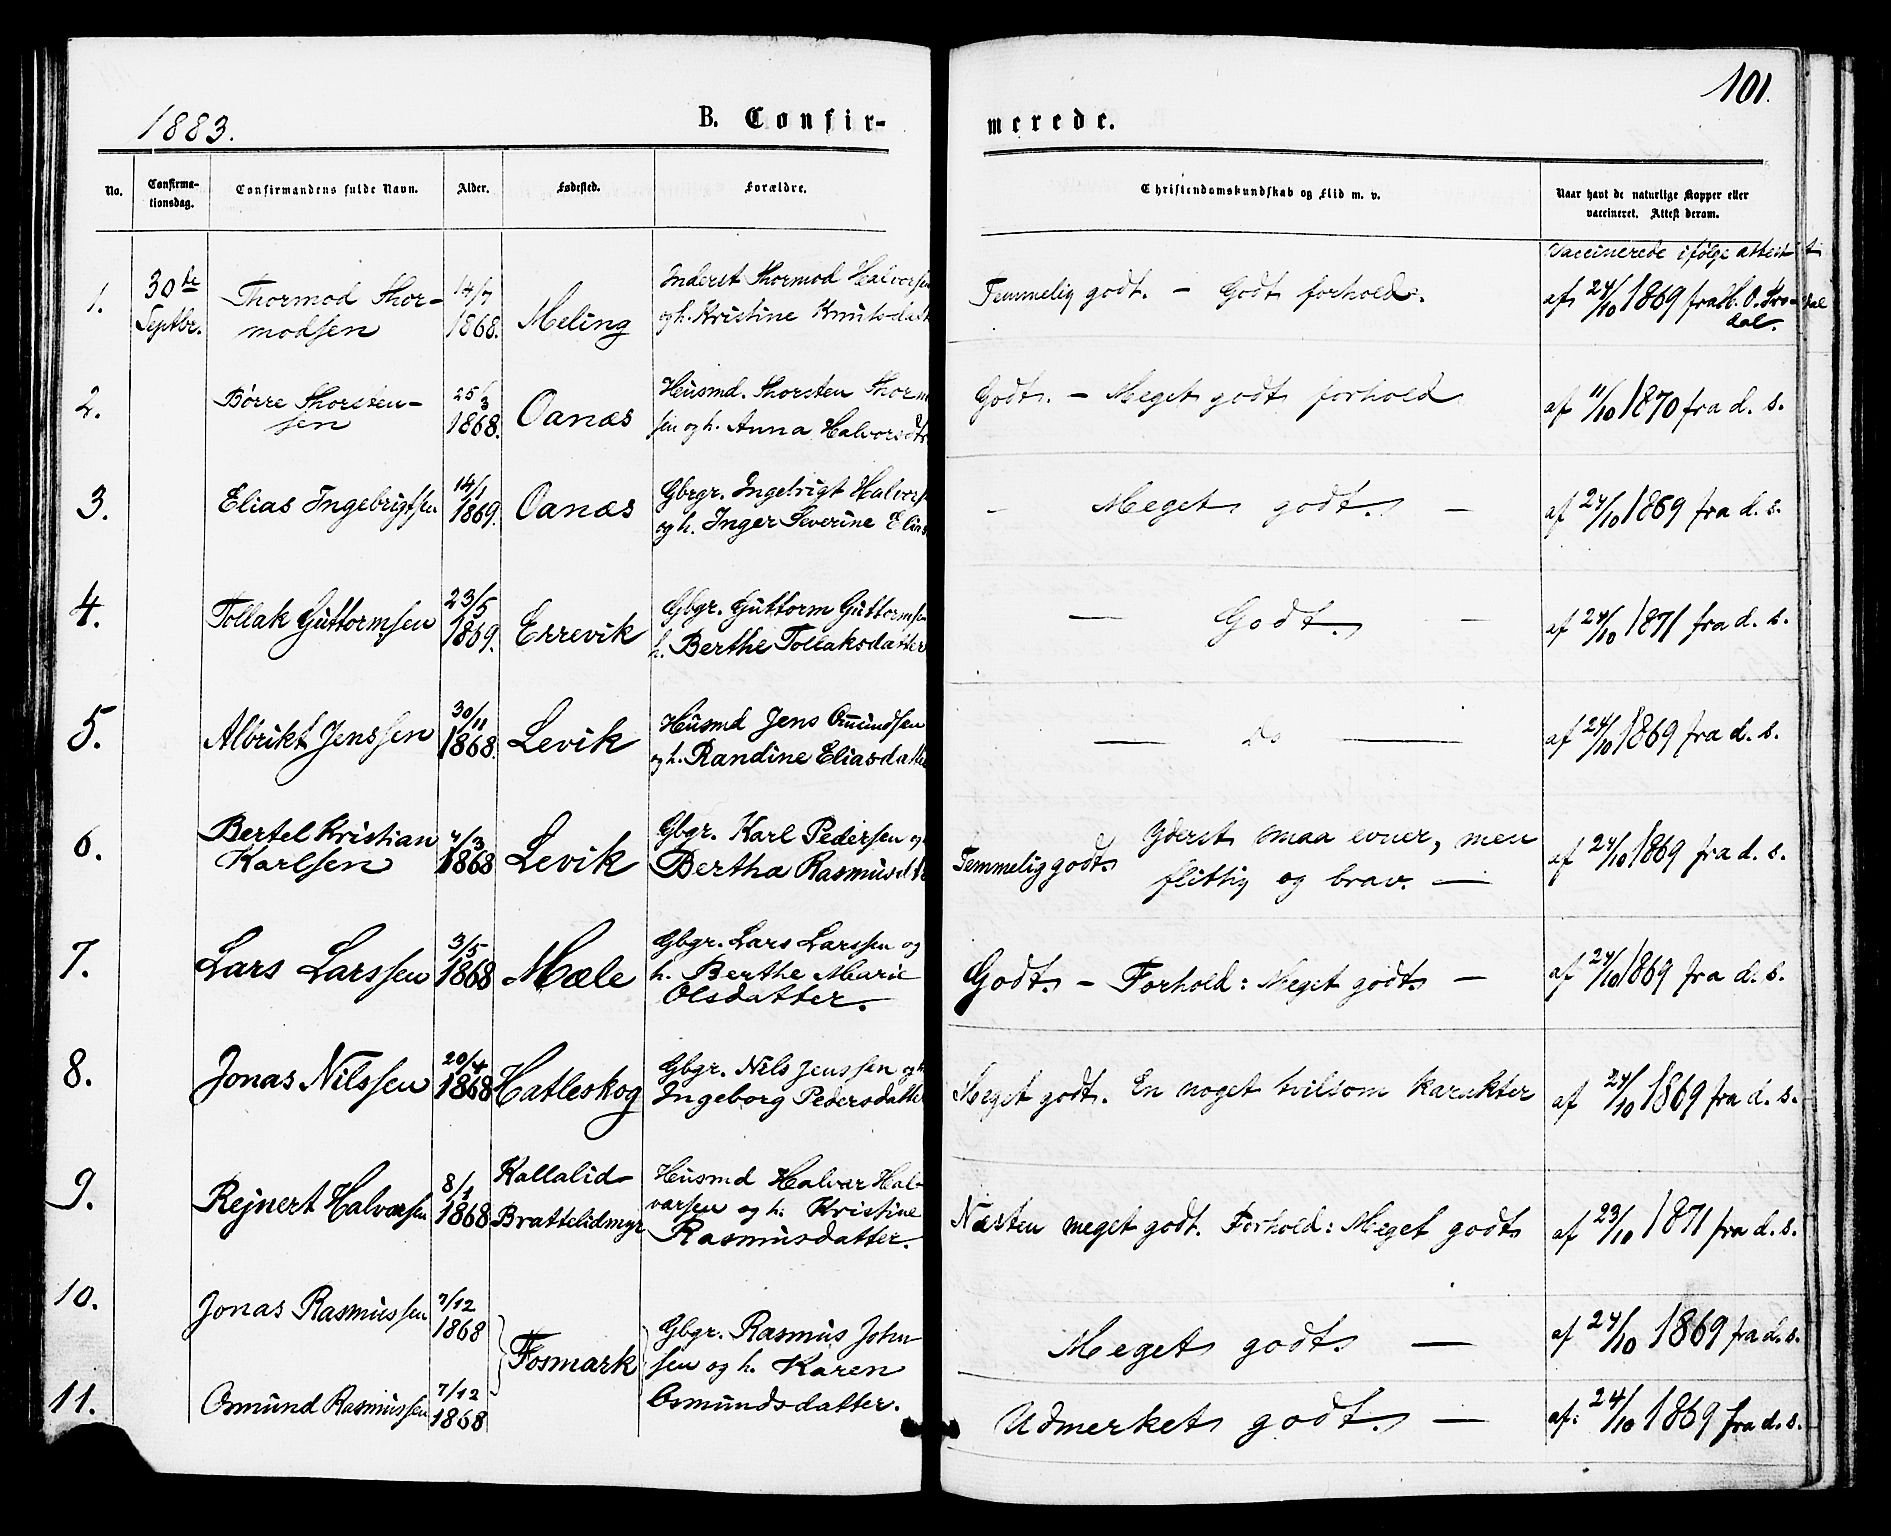 101.
1883.
B. Confir-
merede.
No.
Confirma-
tionsdag.
Confirmandens fulde Navn.
Alder.
Fødested.
Forældre.
Christendomskundskab og Flid m. v.
Naar havt de naturlige Kopper eller
vaccineret. Attest derom.
1.
30te
Septbr.
Thormod Thor-
modsen
14/7
1868.
Meling
Inderst Thormod Halvorsen
og h. Kristine Knutsdatt
Temmelig godt. – Godt forhold.
Vaccinerede ifølge attest
af 24/10 1869 fra
dal.
2.
Børre Thorsten-
sen
25/3
1868.
Oanæs
Husmd. Thorsten Thorm
sen og h. Anna Halvorsdtr
Godt. – Meget godt forhold
af 11/10 1870 fra d. s.
3.
Elias Ingebrigtsen
14/1
1869.
Oanæs
Gbrgr. Ingebrigt Halvors
og h. Inger Severine Elias
– Meget godt. –
af 24/10 1869 fra d. s.
4.
Tollak Guttormsen
23/5
1869.
Errevik
Gbgr. Guttorm Guttormsen
h. Berthe Tollaksdatter
— Godt. –
af 24/10 1871 fra d. s.
5.
Albrikt Jenssen
30/11
1868.
Levik
Husmd Jens Omundsen
og h. Randine Eliasdatte
— Do —
af 24/10 1869 fra d. s.
6.
Bertel Kristian
Karlsen
7/3
1868
Levik
Gbgr. Karl Pedersen og
Bertha Rasmusdtr
Temmelig godt. Yderst smaa evner, men
flittig og brav. —
af 24/10 1869 fra d. s.
7.
Lars Larssen
3/5
1868
Mæle
Gbgr. Lars Larssen og
h. Berthe Marie
Olsdatter.
Godt. – Forhold: Meget godt. –
af 24/10 1869 fra d. s.
8.
Jonas Nilssen
20/4
1868
Hatleskog
Gbgr. Nils Jenssen og h
Ingeborg Pedersdatte
Meget godt. En noget tvilsom karakter
af 24/10 1869 fra d. s.
9.
Rejnert Halvarsen
8/1
1868
Kallalid-
Brattelidmyr
Husmd Halvar Hal-
varsen og h. Kristine
Rasmusdatter.
Næsten meget godt. Forhold: Meget godt
af 23/10 1871 fra d. s.
10.
Jonas Rasmussen
7/12
1868
Fosmark
Gbgr. Rasmus John-
sen og h. Karen
Osmundsdatter.
Meget godt —
af 24/10 1869 fra d. s.
11.
Osmund Rasmussen
7/12
1868
Udmerket godt. —
af: 24/10 1869 fra d. s.